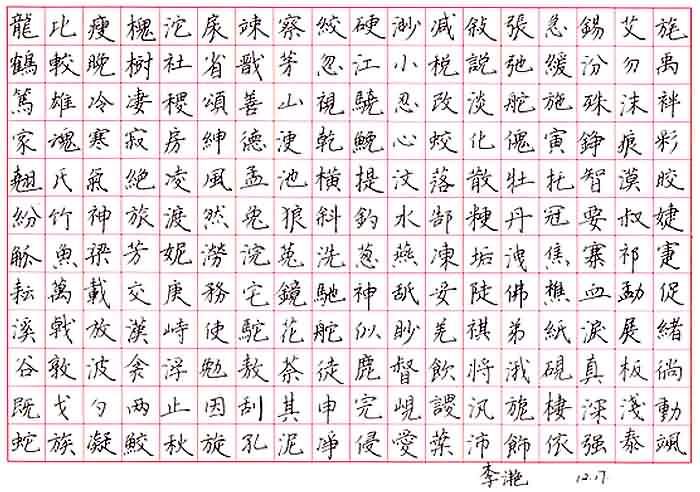 龍比瘦槐沱尿竦察絞硬渺减敍張急錫艾施
鶴較晚樹社省戬芳忽江小税說弛緩汾勿禹
篤雄冷凄稷頌善山視驍忍改淡舵施殊沫袢
家魂寒寂房紳德浭乾鯢心蛟化傀寅錚痕彩
翹氏氣絕凌風孟池橫提汶落散牡托智漠胶
紛竹神旅渡然兎狼斜釣水郜粳丹冠要叔婕
觚魚梁芳妮澇浣菟洗葱燕凍垢洩焦寨祁蹇
耘萬載交庚務宅鏡馳神舐安陡佛樵血勐促
溪戟放漢峙使駝花舵似眇羌祺弟紙淚展緒
谷敦波奂浮勉敖荼徒鹿督飲將涐硯真板倘
既戈勺兩止因刮其申完峴謖汎旎棲深淺動
蛇族凝鮫秋旋孔泥净侵愛葉沛飾依强泰颯
李滟 12.17.